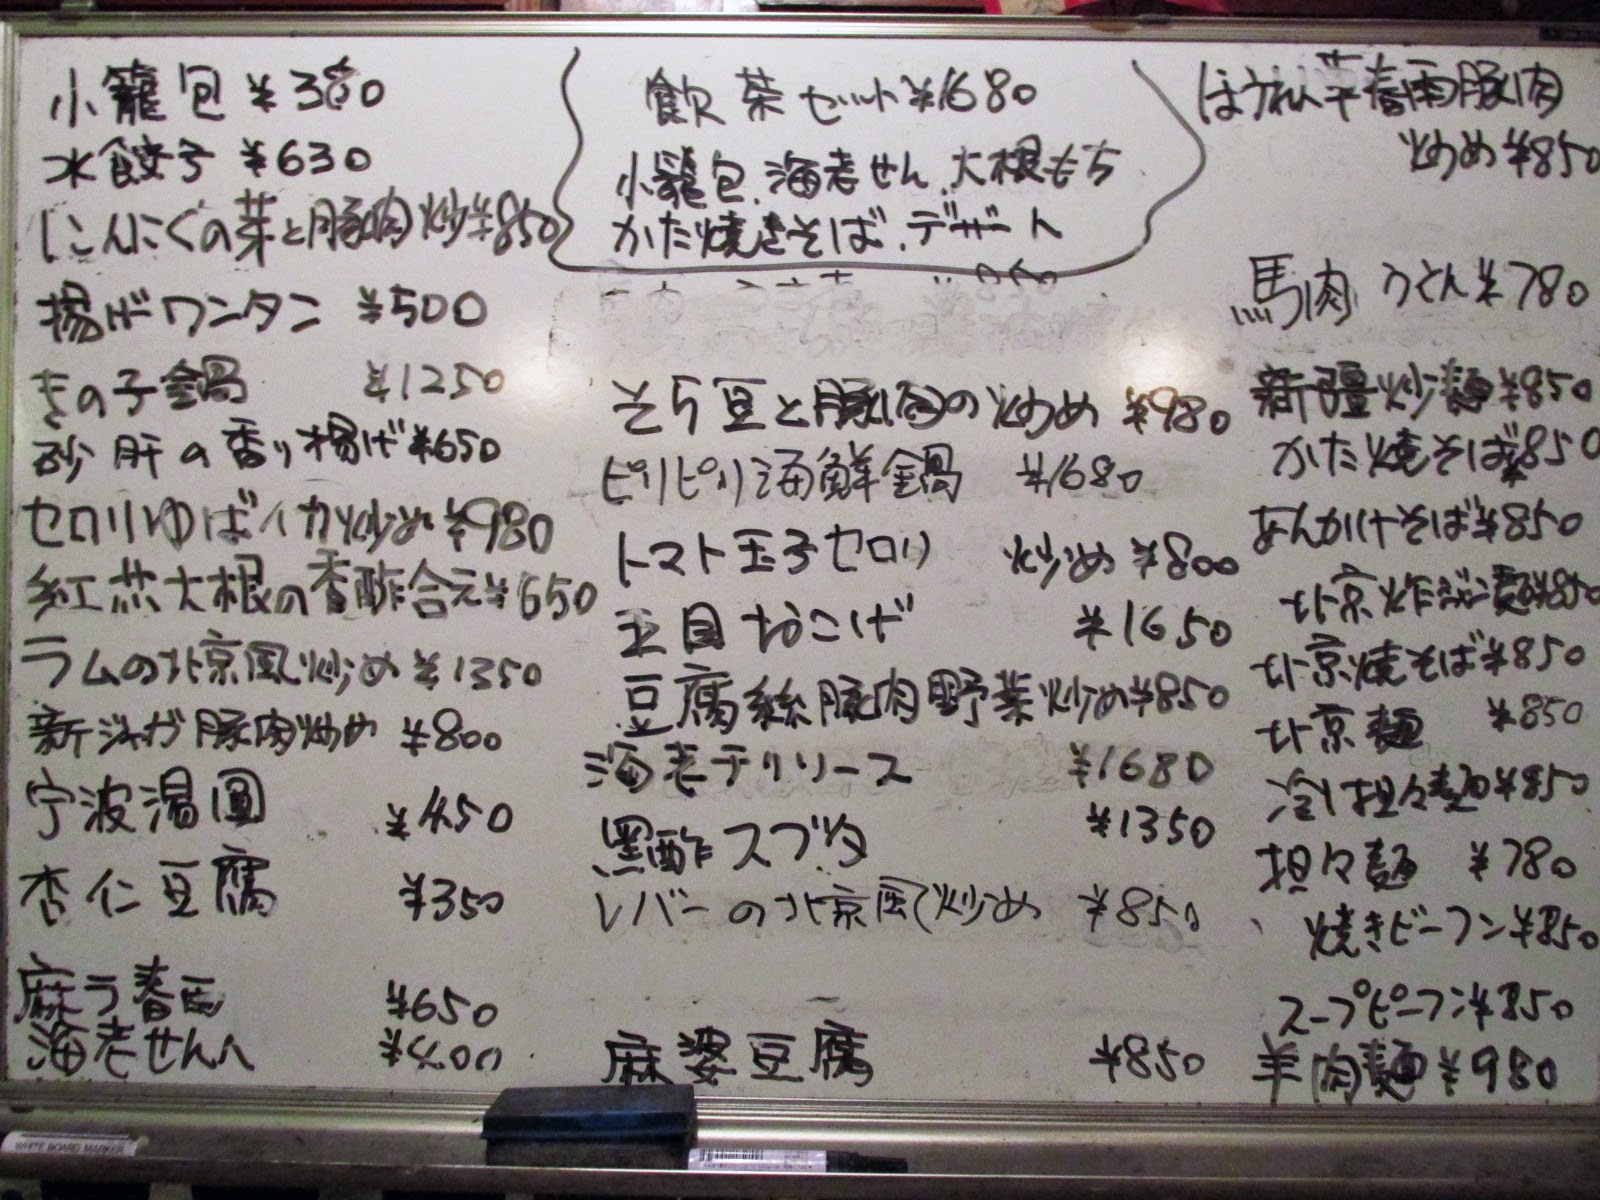 小籠包 ¥380
水餃子 ¥630
にんにくの芽と豚肉炒¥850
揚げワンタン ¥500
きの子鍋 ¥1250
砂肝の香り揚げ¥650
セロリゆばイカ炒め¥980
紅芯大根の香酢合元¥650
ラムの北京風炒め¥1350
新ジャガ豚肉炒め ¥800
宁波湯圓 ¥450
杏仁豆腐 ¥350
麻ラ春雨 ¥650
海老せんべ
飲茶セット¥1680
小籠包、海老せん、大根もち
かた焼きそば、デザート
そら豆と豚肉の炒め ¥980
ピリピリ海鮮鍋 ¥1680
トマト玉子セロリ 炒め ¥800
五目おこげ ¥1650
豆腐絲豚肉野菜炒め¥850
海老チリソース ¥1680
黒酢スブタ ¥1350
レバーの北京風炒め ¥850
麻婆豆腐 ¥850
ほうれん草春雨豚肉
炒め¥850
馬肉うどん¥780
新疆炒麺¥850
かた焼そば¥850
あんかけそば¥850
北京炸ジャン麺¥850
北京焼そば¥850
北京麺 ¥850
冷し担々麺¥850
担々麺 ¥780
焼きビーフン¥850
スープビーフン¥850
羊肉麺¥980
WHITE BOARD MARKER